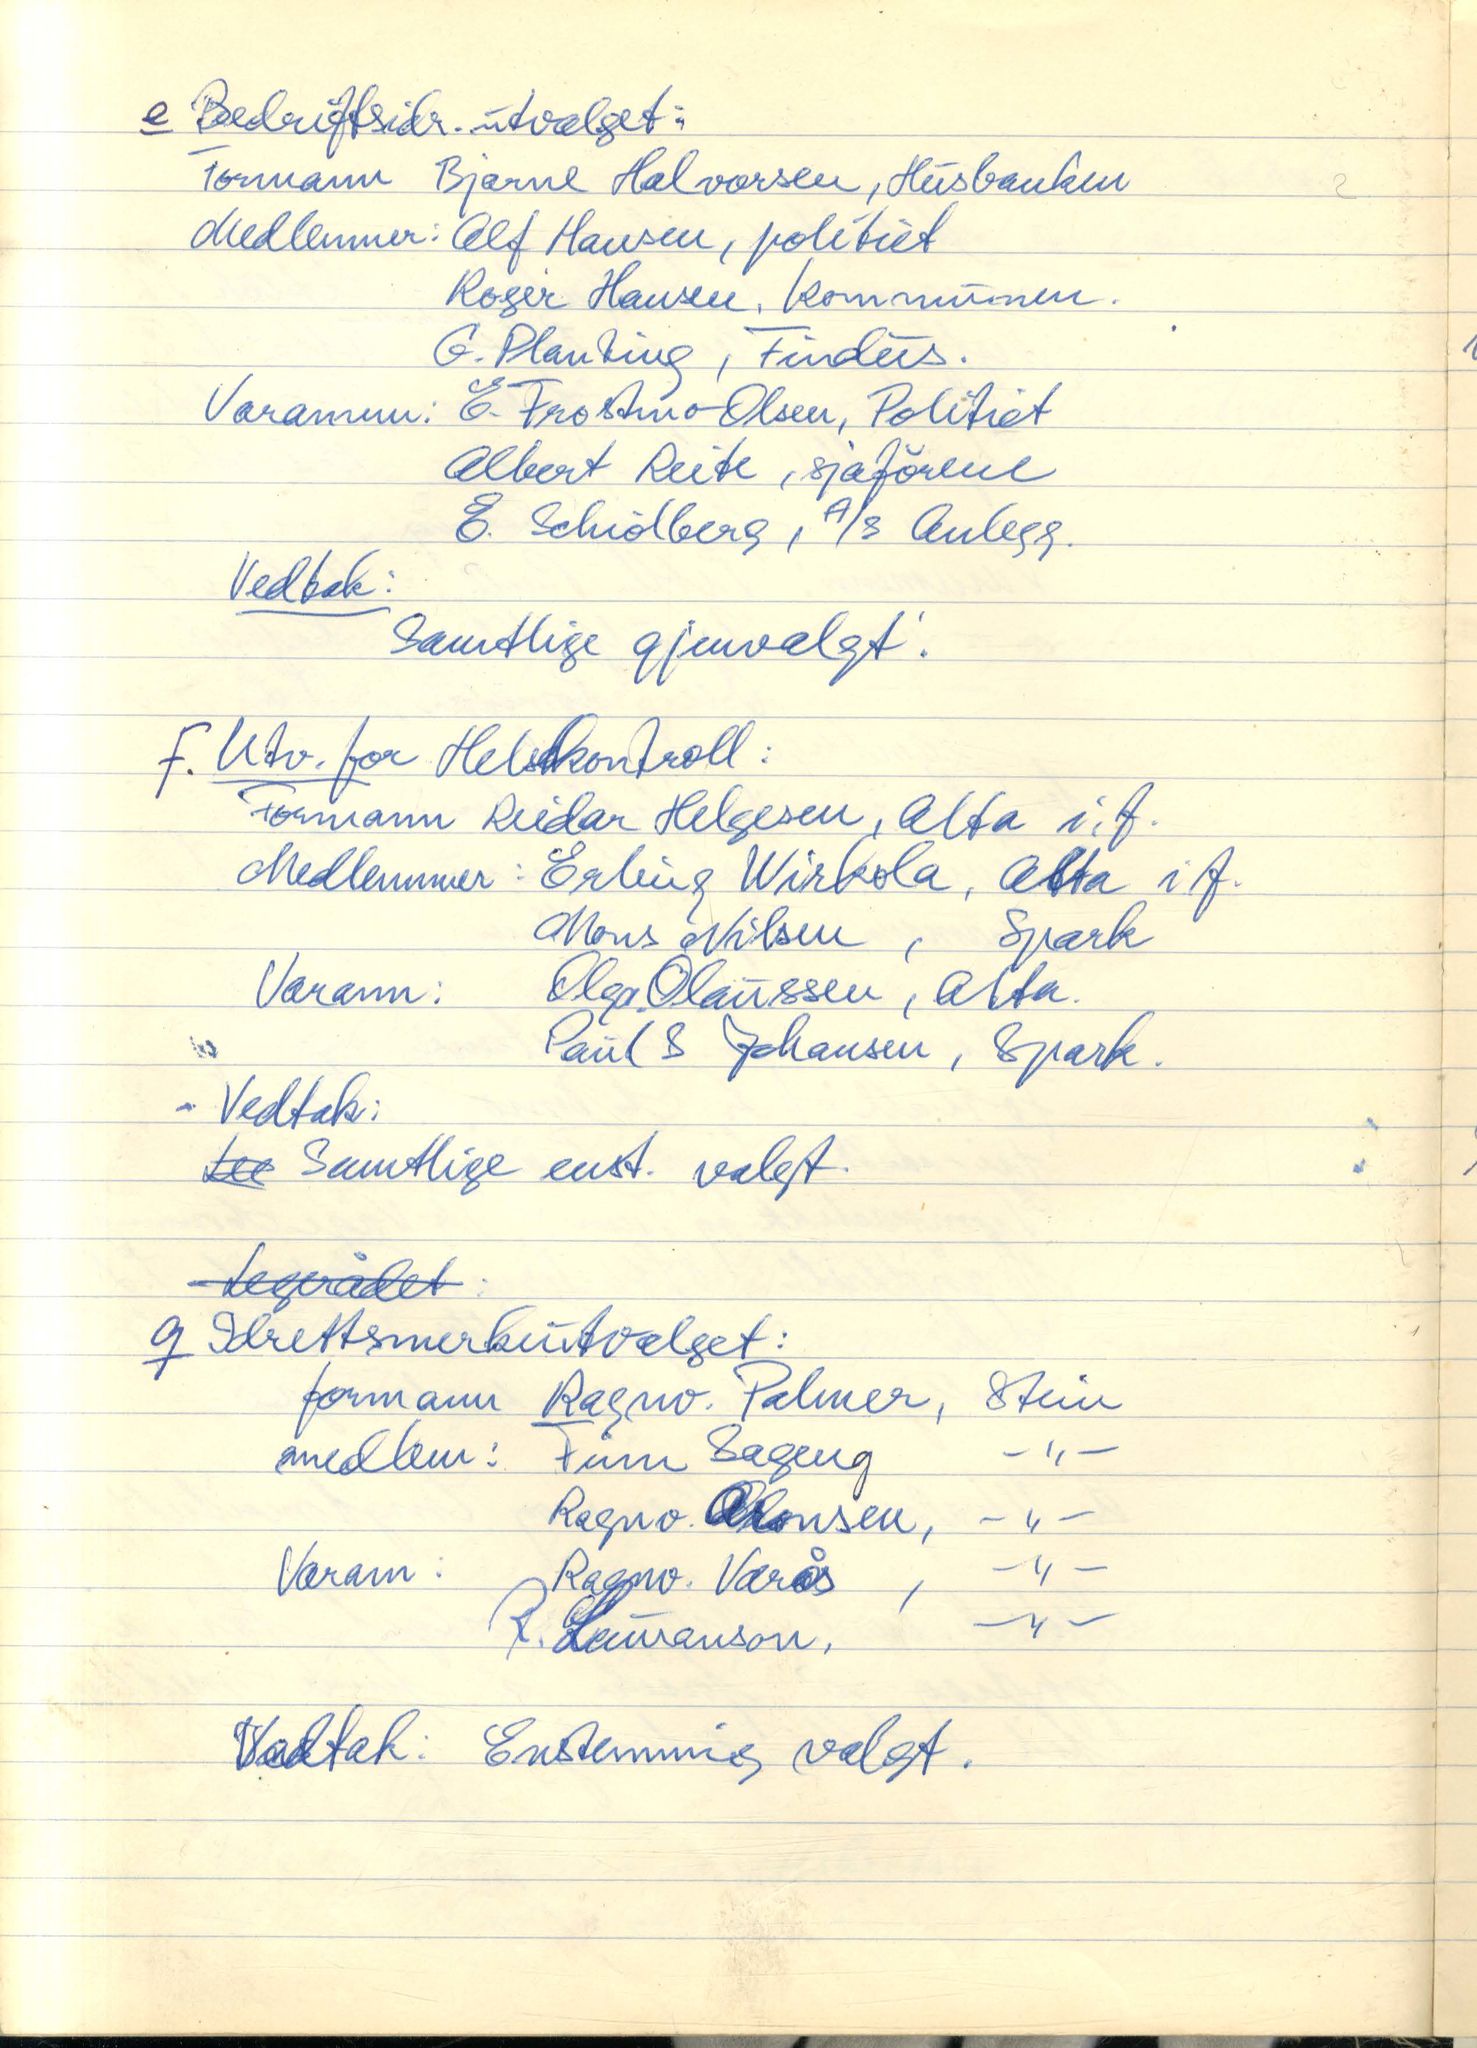 e Bedriftsidr. utvalget:
Formann Bjarne Halvorsen, Husbanken
Medlemmer: Alf Hansen, politiet
Roger Hansen, kommunen.
G. Planting, Findus.
Varamenn: E. Frostmo-Olsen, Politiet
Albert Reite, sjåførene
E. Schidlberg, A/S Anlegg.
Vedtak:
Samtlige gjenvalgt.
f. Utv. for Helsekontroll:
Formann Reidar Helgesen, Alta i.f.
Medlemmer: Erling Wirkola, Alta i f.
Mons Nilsen, Spark
Varam: Olga Olaussen, Alta.
Paul S Johansen, Spark.
- Vedtak:
Samtlige enst. valgt.
Legerådet:
g Idrettsmerkeutvalget:
formann Ragnv. Palmer, Stein
medlem: Finn Sageng -"-
Ragnv. Aronsen, -"-
Varam: Ragnv. Varås, -"-
R. Lauranson, -"-
Vedtak: Enstemmig valgt.